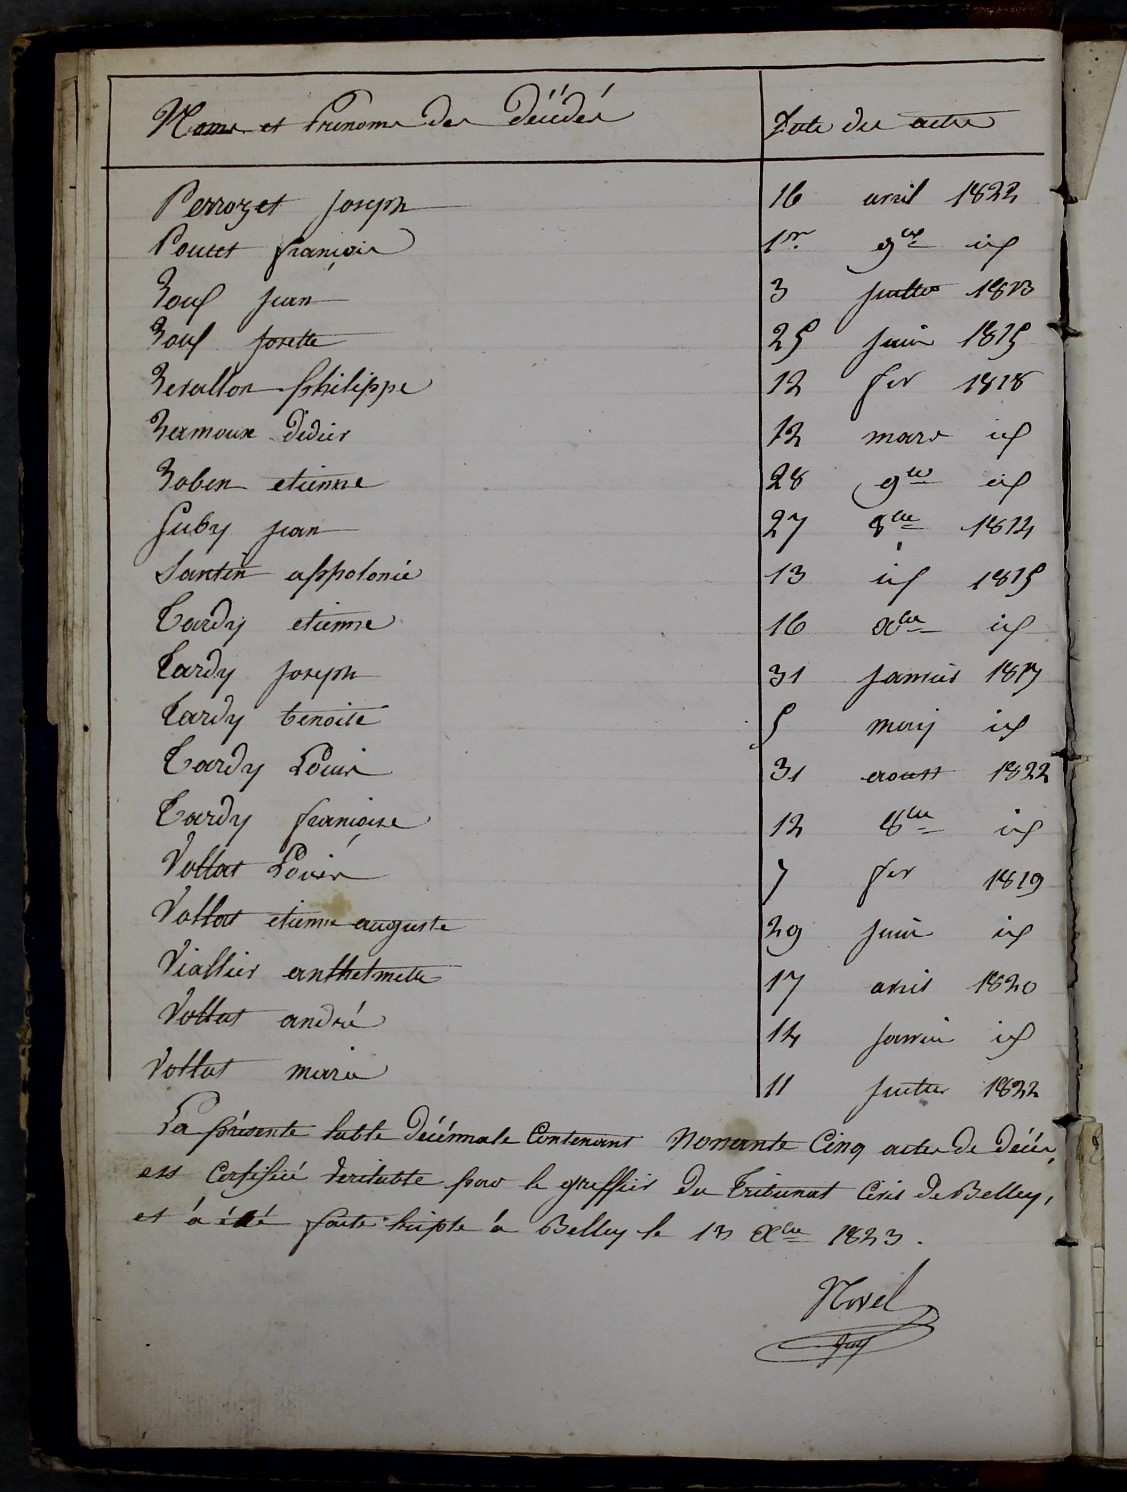 Noms et Prénoms des Décédés Date des actes
Perrozet Joseph 16 avril 1822
Poncet françois 1er 9bre id
Roux Jean 3 Juillet 1813
Roux Josette 25 Juin 1815
Revallon philippe 12 fer 1818
Ramoux Didier 12 mars id
Robin etienne 28 9bre id
Juby Jean 27 8bre 1814
Santin appolonie 13 id 1815
Tardy etienne 16 Xbre id
Tardy Joseph 31 Janvier 1817
Tardy benoite 5 may id
Tardy Louis 31 aoust 1822
Tardy françoise 12 8bre id
Vollat Louis 7 fer 1819
Vollat etienne auguste 29 Juin id
Viallier anthelmette 17 avril 1820
Vollat andré 14 Janvier id
Vollat marie 11 Juillet 1822
La présente table décénnale Contenant Nonante Cinq actes de décès,
est Certifiée véritable par le greffier du Tribunal Civil de Belley,
et à été faite triple à Belley le 13 Xbre 1823.
Novel